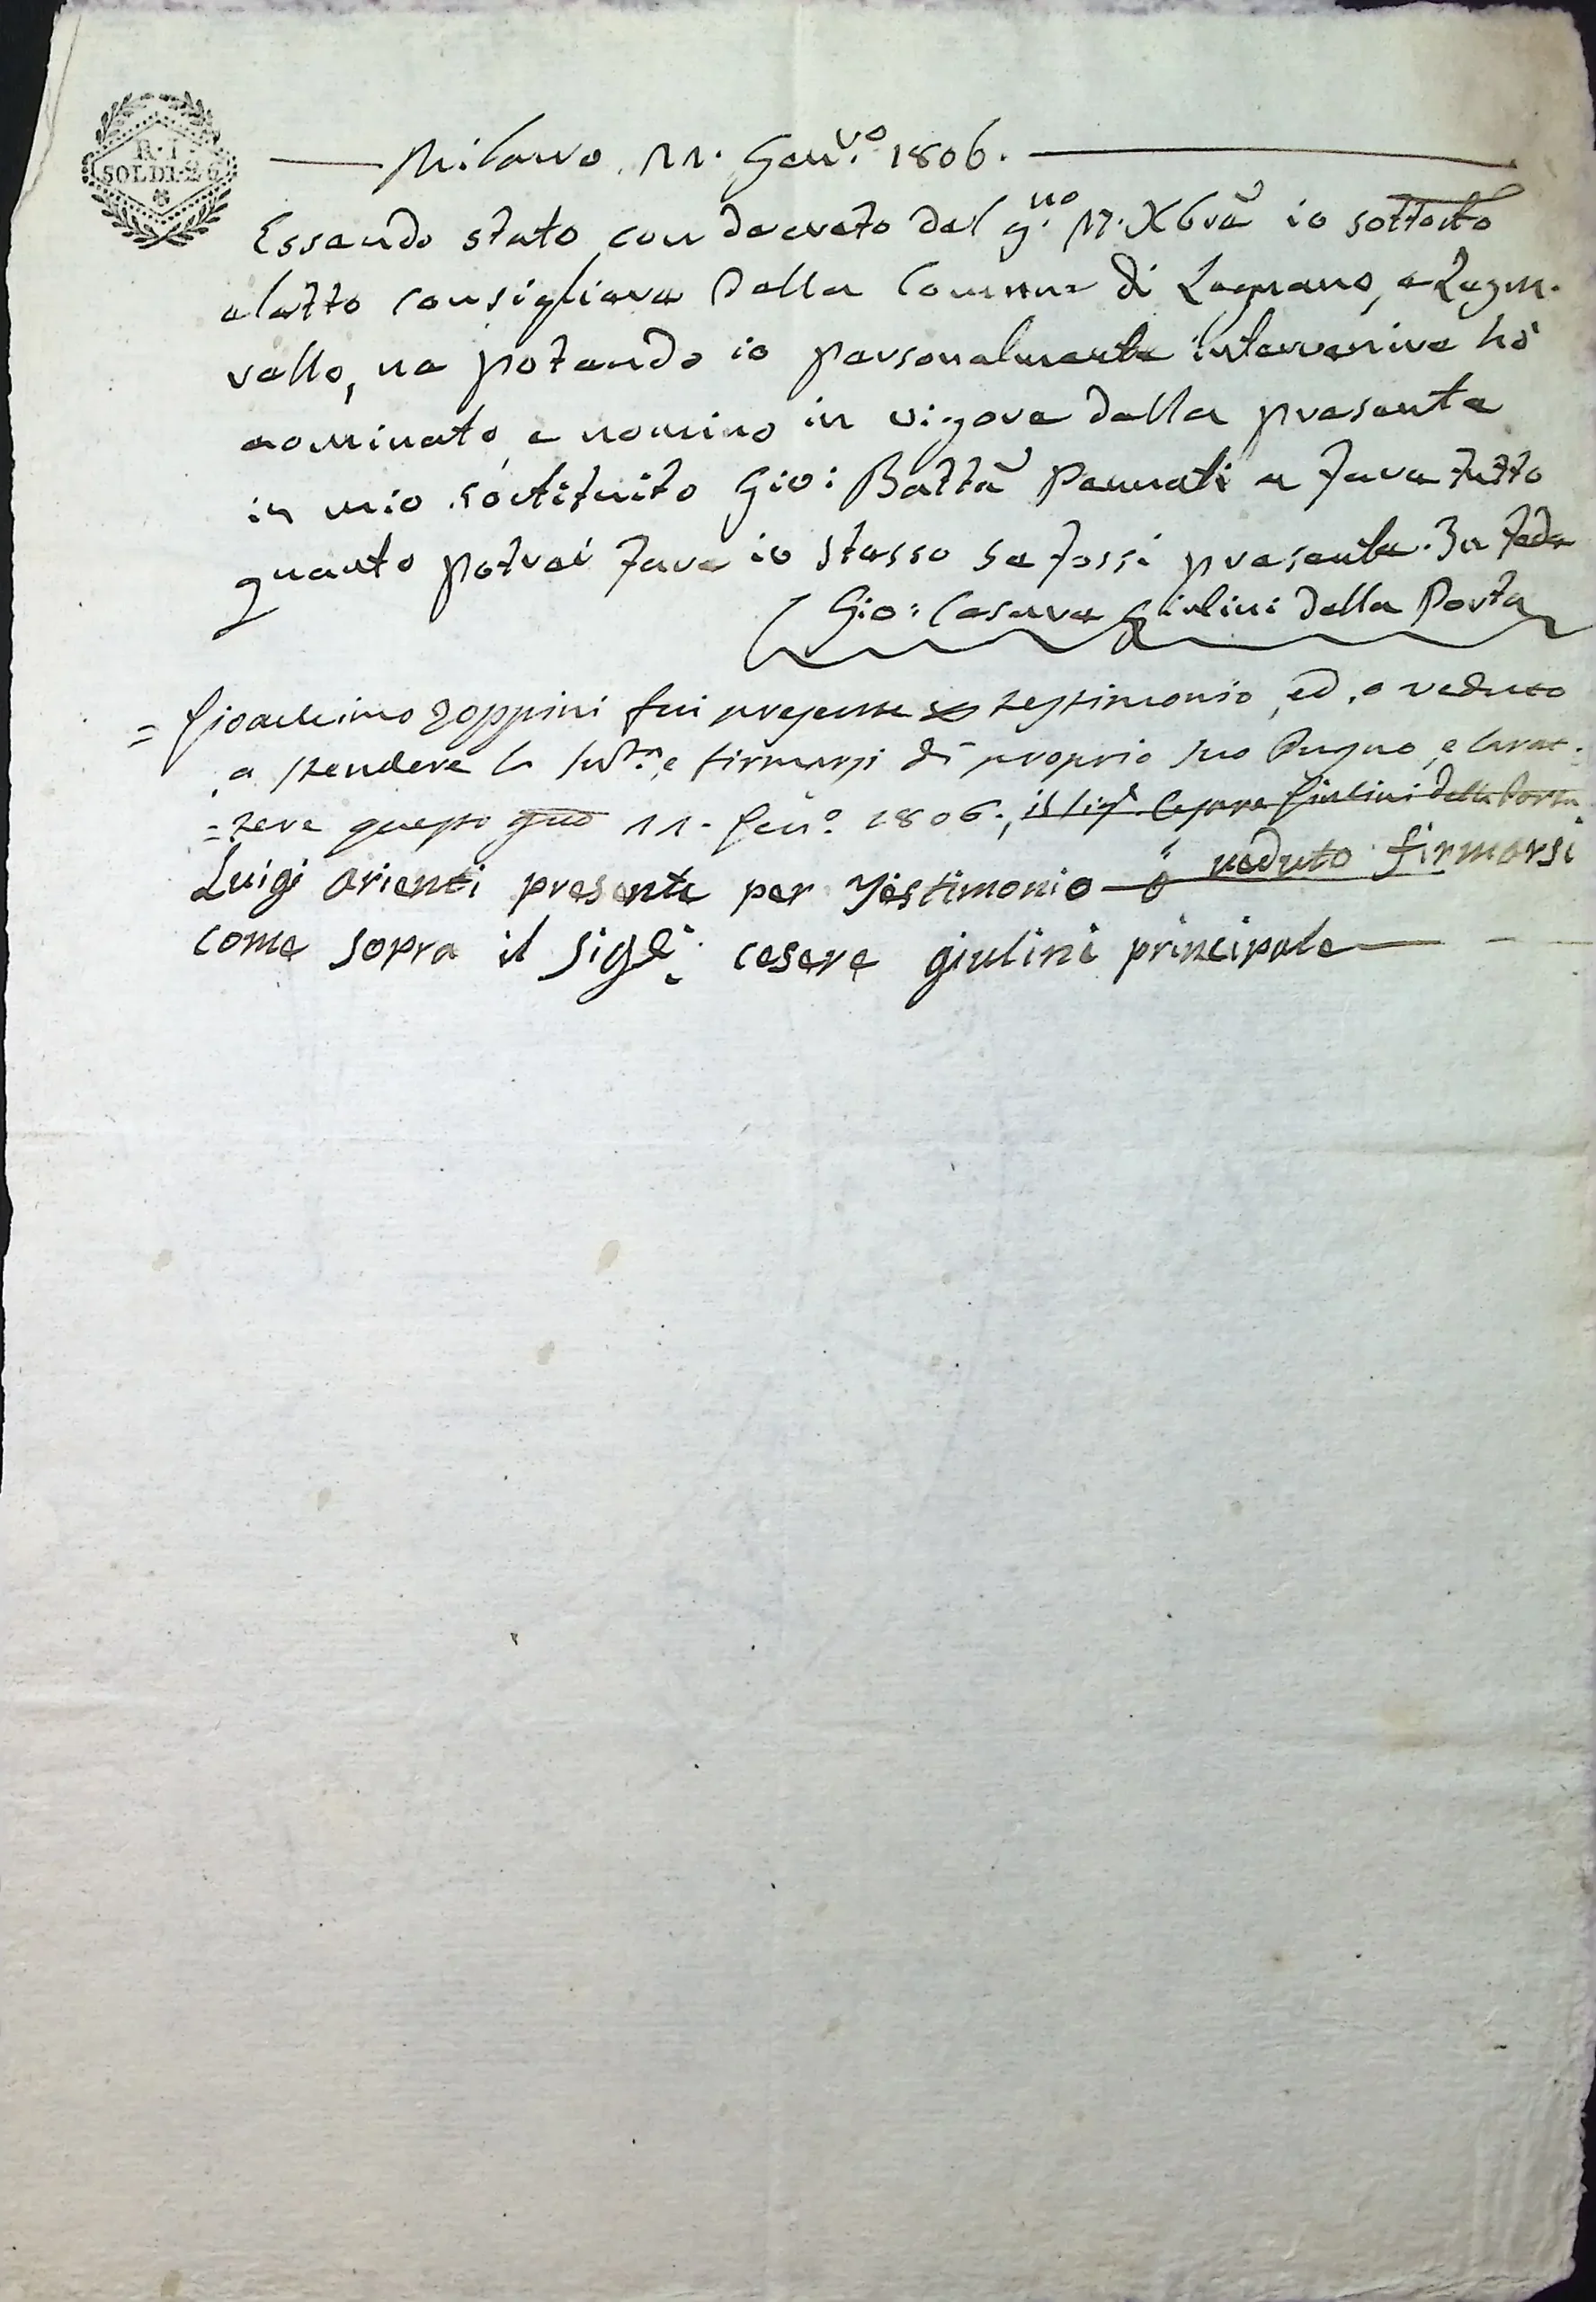 R·I·
SOLDI·26
Milano 11. Gen.ro 1806.
Essendo stato con decreto del g.no 17. Xbrē io sottoscto
eletto consigliere della Comune di Legnano, e Legna-
rello, ne potendo io personalmente intervenire hò
nominato, e nomino in vigore della presente
in mio sostituito Gio: Batta Pennati a fare tutto
quanto potrei fare io stesso se fossi presente. In fede
Gio: Cesare Giulini della Porta
= Gioachimo Zoppini fui presente testimonio, ed o veduto
a stendere la e firmarsi di proprio suo Pugno, e carat-
=tere questo 11. Gen.o 1806., il Sig.r Cesare Giulini della Porta
Luigi Orienti presente per Testimonio ò veduto firmarsi
come sopra il Sig.e cesere giulini principale